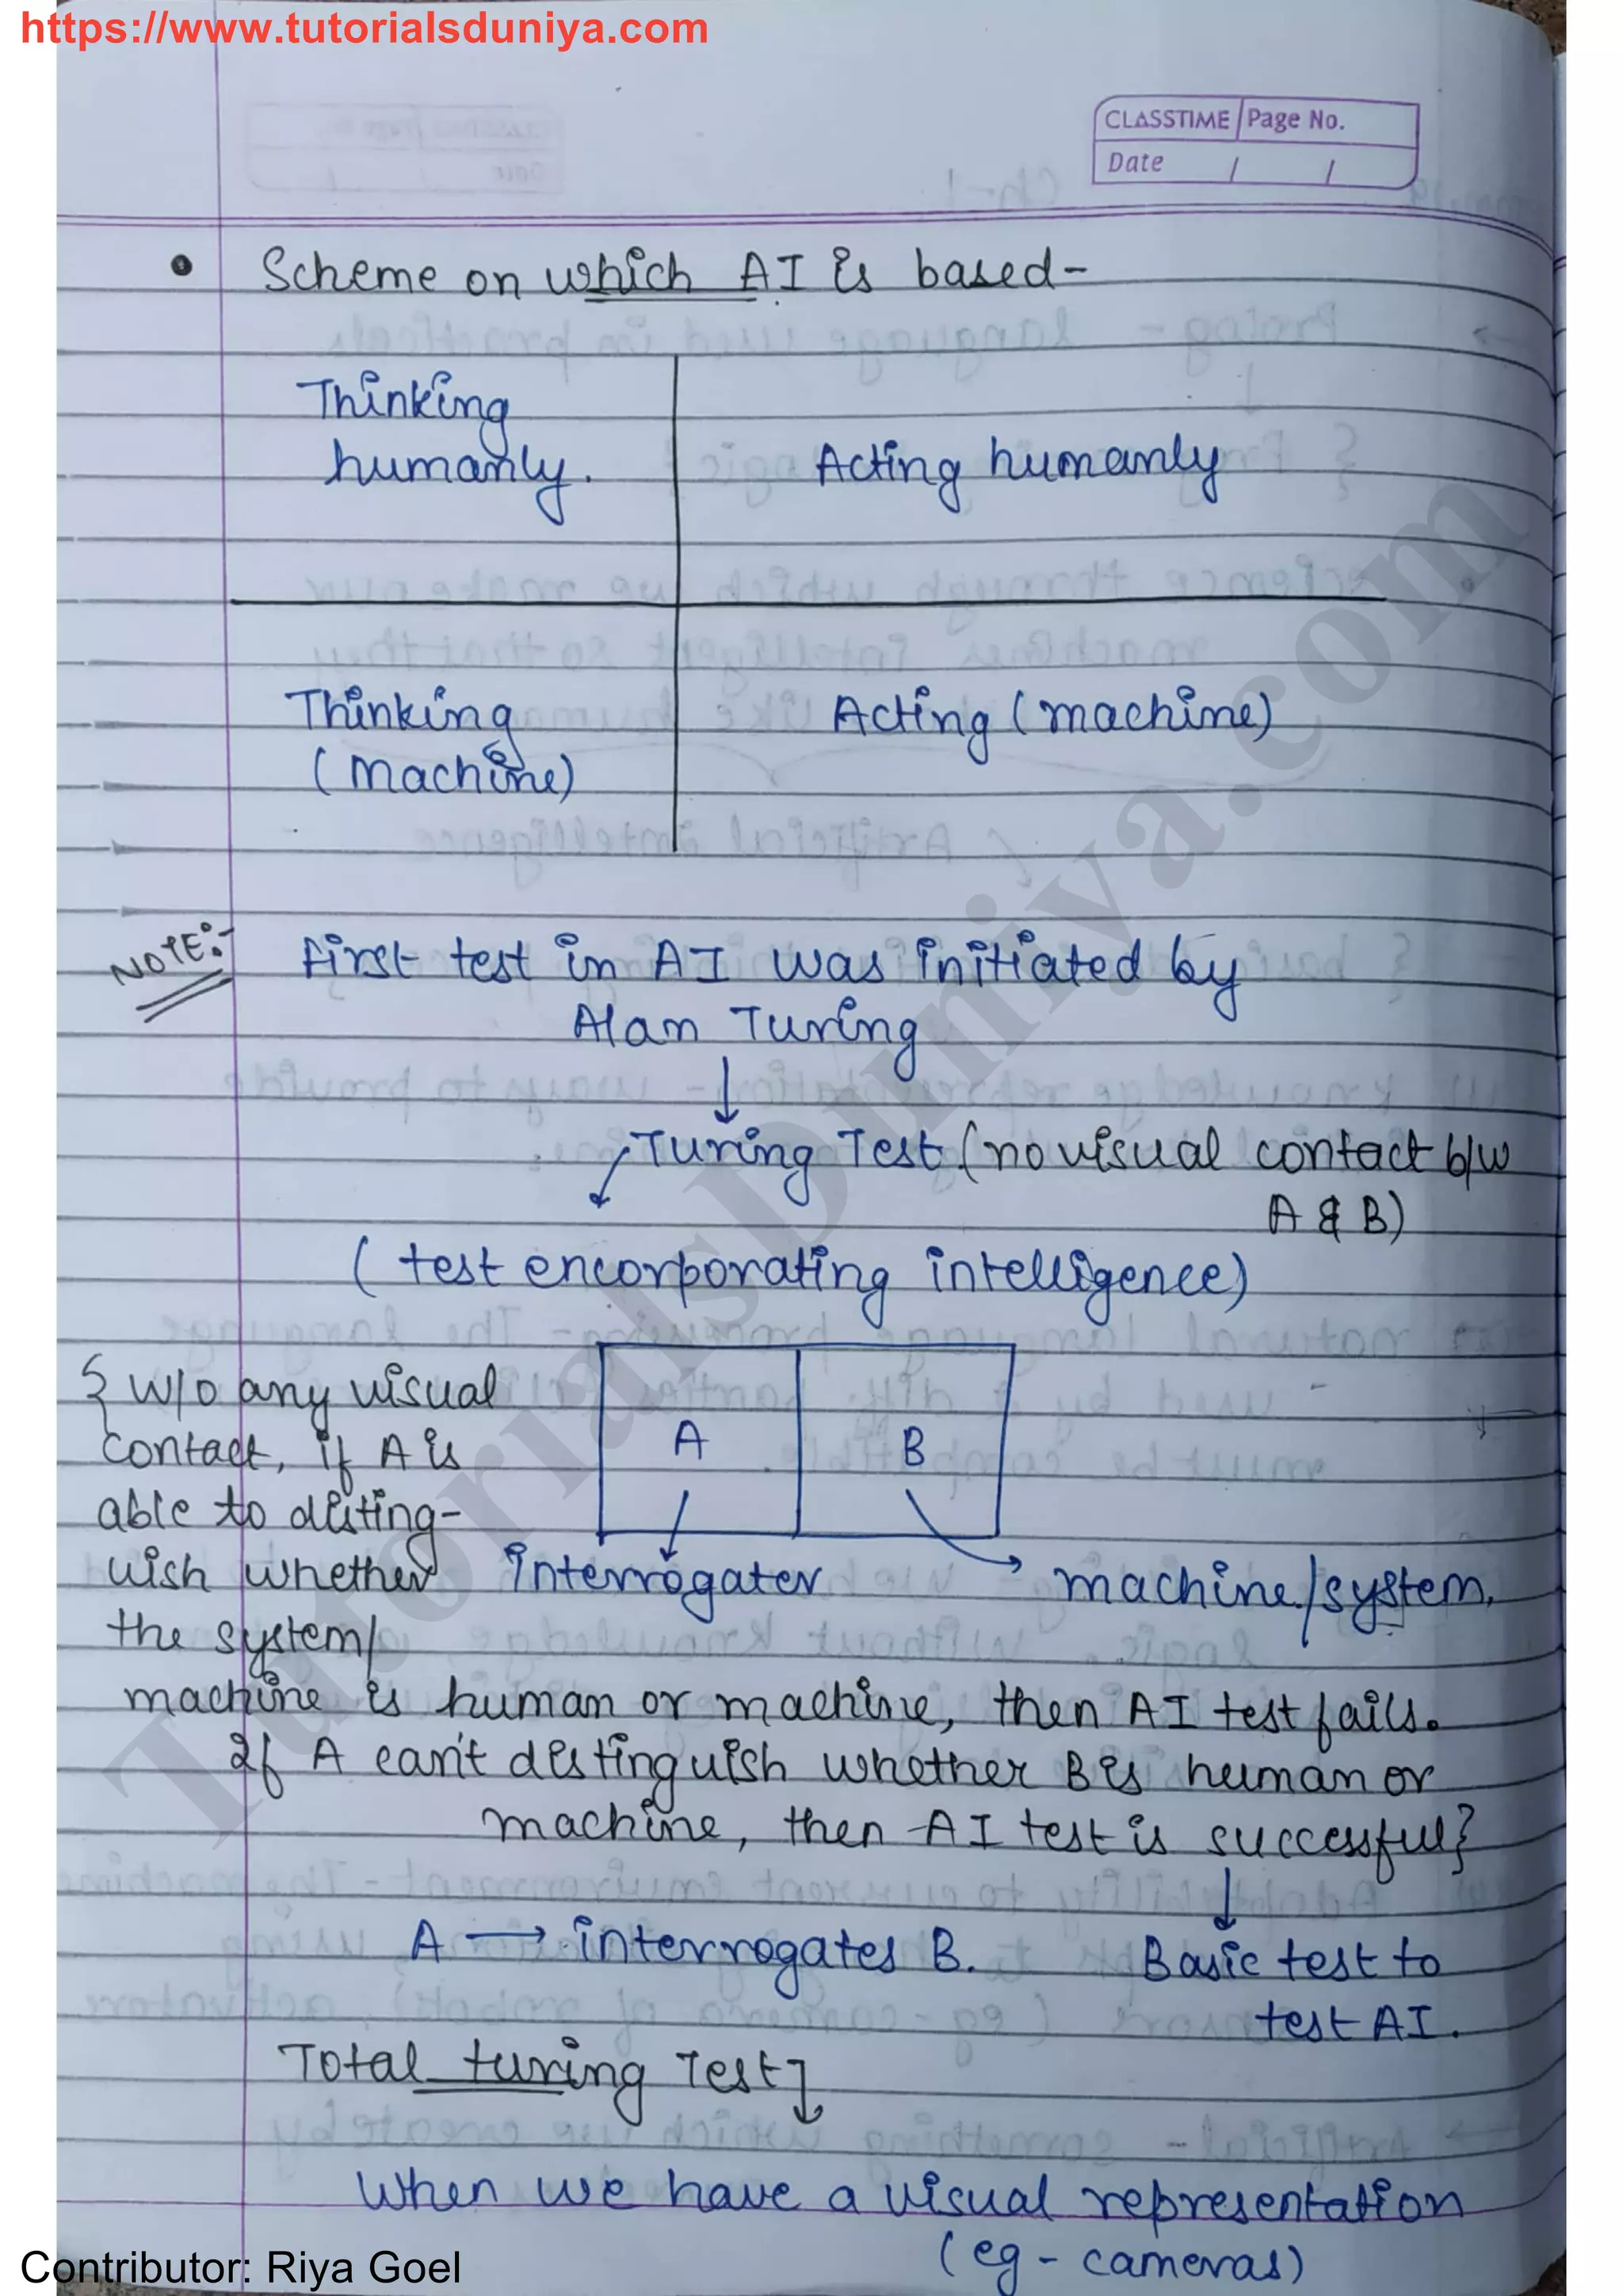 https://www.tutorialsduniya.com
CLASSTIME Page No.
Date / /
• Scheme on which AI is based-
Thinking
humanly.
Acting humanly
Thinking
(Machine)
Acting (machine)
NOTE:-
First test in AI was initiated by
Alan Turing
↓
Turing Test (no visual contact b/w
A & B)
(test encorporating intelligence)
A
B
{ w/o any visual
contact, if A is
able to disting-
uish whether
interrogater
machine/system.
the system/
machine is human or machine, then AI test fails.
If A can't distinguish whether B is human or
machine, then AI test is successful}
↓
A → interrogates B.
Basic test to
test AI.
Total turing Test
When we have a visual representation
(eg - cameras)
TutorialsDuniya.com
Contributor: Riya Goel